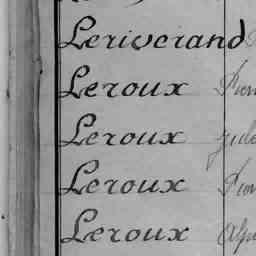 Leriverand
Leroux
Leroux
Leroux
Leroux